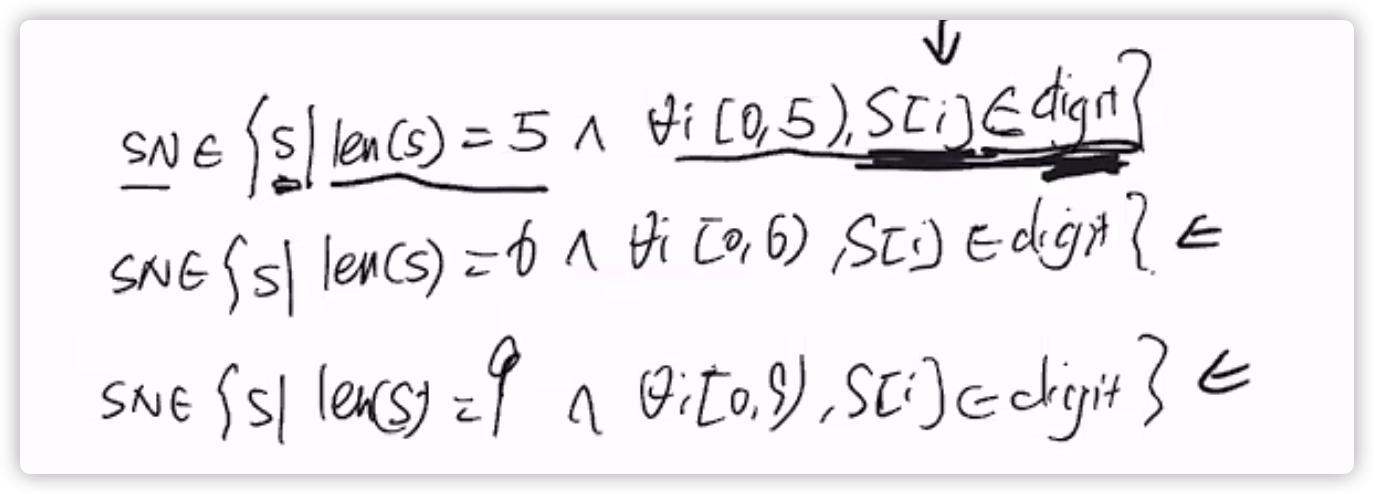 SN ∈ {s| len(s) = 5 ∧ ∀i [0,5), S[i] ∈ digit}
SN ∈ {s| len(s) = 6 ∧ ∀i [0,6) ,S[i] ∈ digit} ∈
SN ∈ {s| len(s) = 9 ∧ ∀i [0,9) ,S[i] ∈ digit} ∈